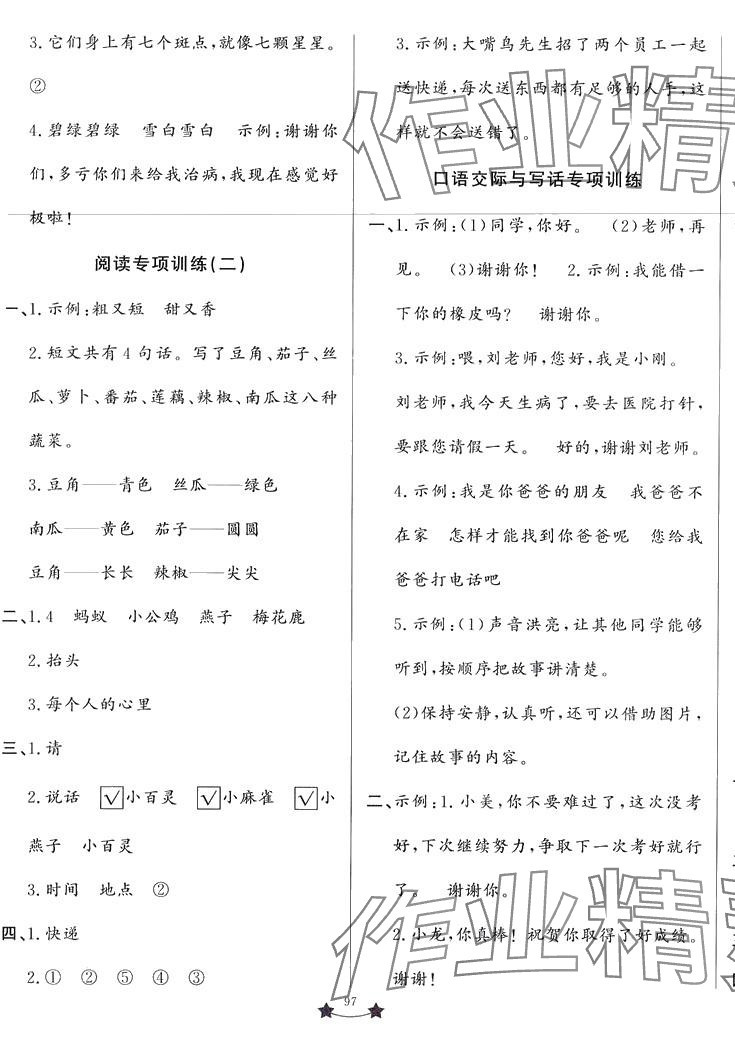 3.它们身上有七个斑点,就像七颗星星。
②
4.碧绿碧绿 雪白雪白 示例:谢谢你
们,多亏你们来给我治病,我现在感觉好
极啦!
阅读专项训练(二)
一、1.示例:粗又短 甜又香
2.短文共有4句话。写了豆角、茄子、丝
瓜、萝卜、番茄、莲藕、辣椒、南瓜这八种
蔬菜。
3.豆角——青色 丝瓜——绿色
南瓜——黄色 茄子——圆圆
豆角——长长 辣椒——尖尖
二、1.4 蚂蚁 小公鸡 燕子 梅花鹿
2.抬头
3.每个人的心里
三、1.请
2.说话 ☑小百灵 ☑小麻雀 ☑小
燕子 小百灵
3.时间 地点 ②
四、1.快递
2.① ② ⑤ ④ ③
3.示例:大嘴鸟先生招了两个员工一起
送快递,每次送东西都有足够的人手,这
样就不会送错了。
口语交际与写话专项训练
一、1.示例:(1)同学,你好。 (2)老师,再
见。 (3)谢谢你! 2.示例:我能借一
下你的橡皮吗? 谢谢你。
3.示例:喂,刘老师,您好,我是小刚。
刘老师,我今天生病了,要去医院打针,
要跟您请假一天。 好的,谢谢刘老师。
4.示例:我是你爸爸的朋友 我爸爸不
在家 怎样才能找到你爸爸呢 您给我
爸爸打电话吧
5.示例:(1)声音洪亮,让其他同学能够
听到,按顺序把故事讲清楚。
(2)保持安静,认真听,还可以借助图片,
记住故事的内容。
二、示例:1.小美,你不要难过了,这次没考
好,下次继续努力,争取下一次考好就行
了。 谢谢你。
2.小龙,你真棒!祝贺你取得了好成绩。
谢谢!
97
作业精
作业精